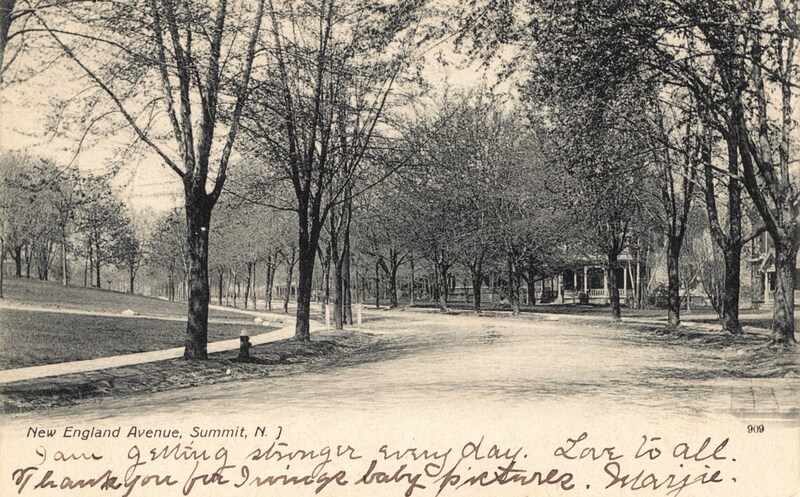 New England Avenue, Summit, N. J
909
I am getting stronger every day. Love to all.
Thank you for Irvings baby pictures. Marjie.